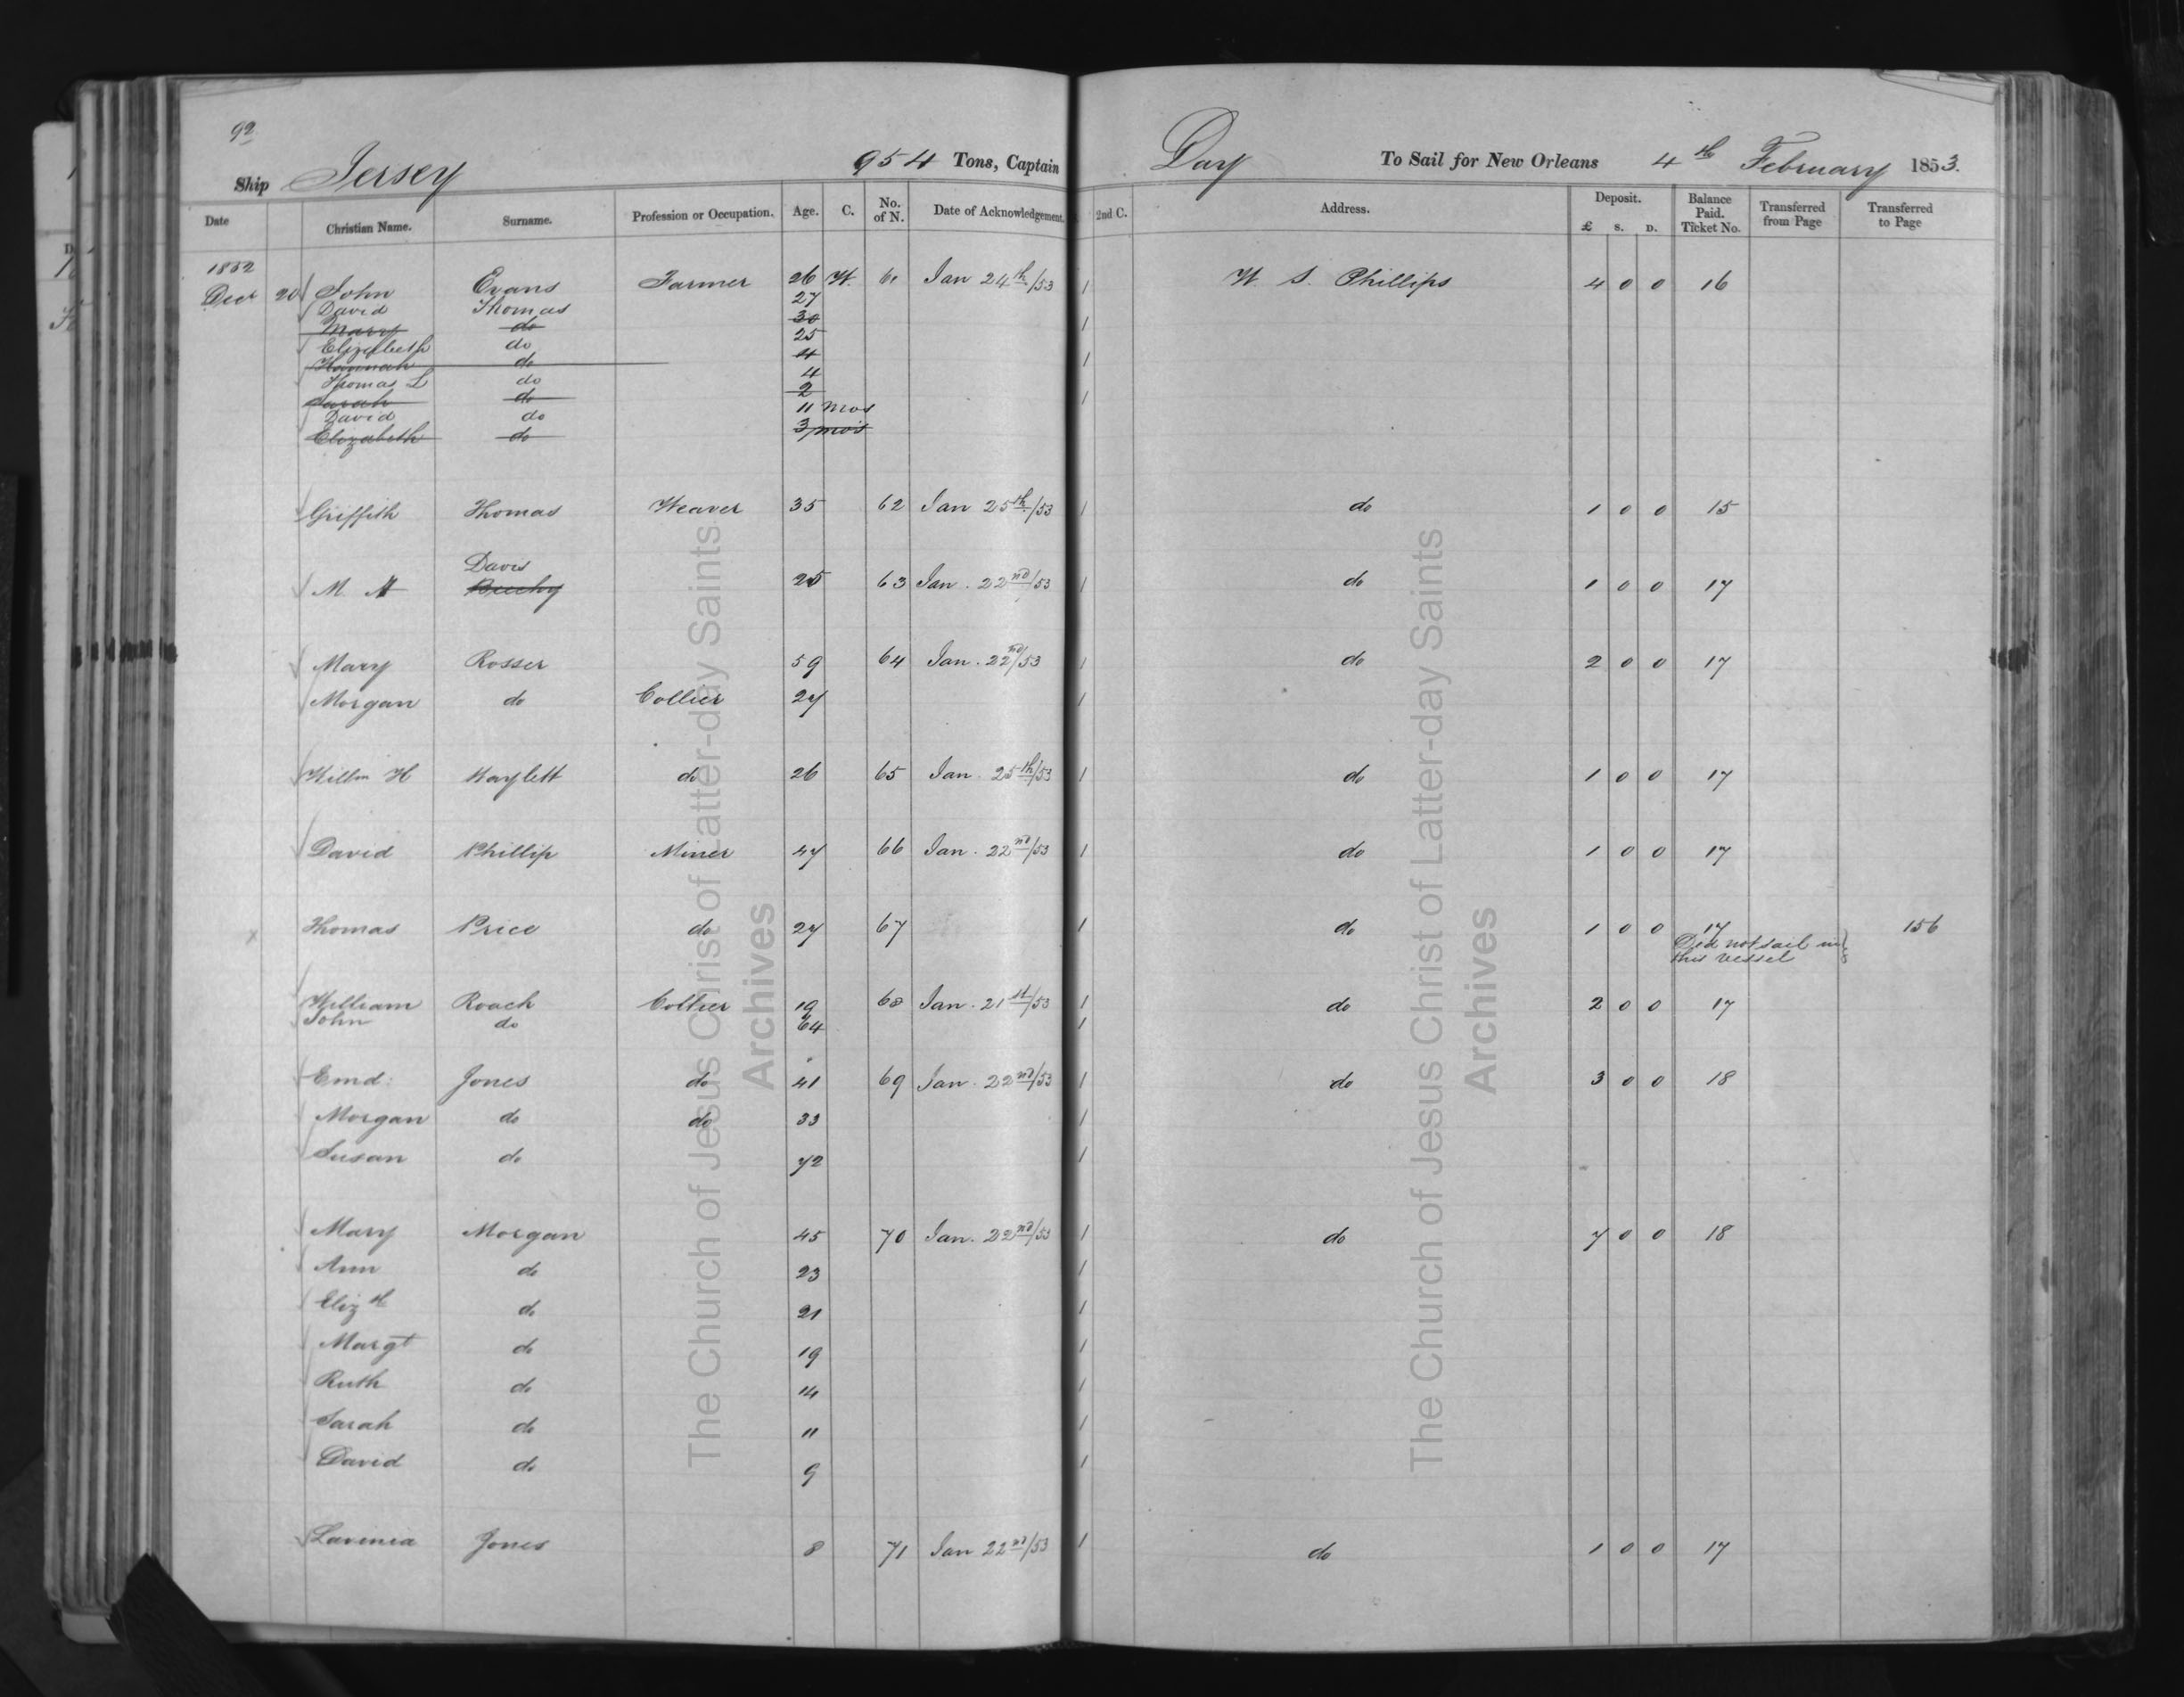 92
Ship Jersey 954 Tons, Captain Day To Sail for New Orleans 4th February 1853.
Date Christian Name. Surname. Profession or Occupation. Age. C. No. of N. Date of Acknowledgement. 2nd C. Address. Deposit. £ S. D. Balance Paid. Ticket No. Transferred from Page Transferred to Page
1852
Decr 20 John Evans Farmer 26 W. 61 Jan 24th/53 1 W. S. Phillips 4 0 0 16
David Thomas 27
Mary do 30 1
Elizabeth do 25
Hannah do 4 1
Thomas L do 4
Sarah do 2 1
David do 11 mos
Elizabeth do 3 mos
Griffith Thomas Weaver 35 62 Jan 25th/53 1 do 1 0 0 15
Davis
M. A 25 63 Jan. 22nd/53 1 do 1 0 0 17
Mary Rosser 59 64 Jan. 22nd/53 1 do 2 0 0 17
Morgan do Collier 27 1
Willm H Waylett do 26 65 Jan. 25th/53 1 do 1 0 0 17
David Phillip Miner 47 66 Jan. 22nd/53 1 do 1 0 0 17
x Thomas Price do 27 67 1 do 1 0 0 17 156
Did not sail in
this vessel
William Roach Collier 19 68 Jan. 21st/53 1 do 2 0 0 17
John do 64 1
Emd. Jones do 41 69 Jan. 22nd/53 1 do 3 0 0 18
Morgan do do 33 1
Susan do 72 1
Mary Morgan 45 70 Jan. 22nd/53 1 do 7 0 0 18
Ann do 23 1
Elizth do 21 1
Margt do 19 1
Ruth do 14 1
Sarah do 11 1
David do 9 1
Lavinia Jones 8 71 Jan 22nd/53 1 do 1 0 0 17
The Church of Jesus Christ of Latter-day Saints
Archives
The Church of Jesus Christ of Latter-day Saints
Archives